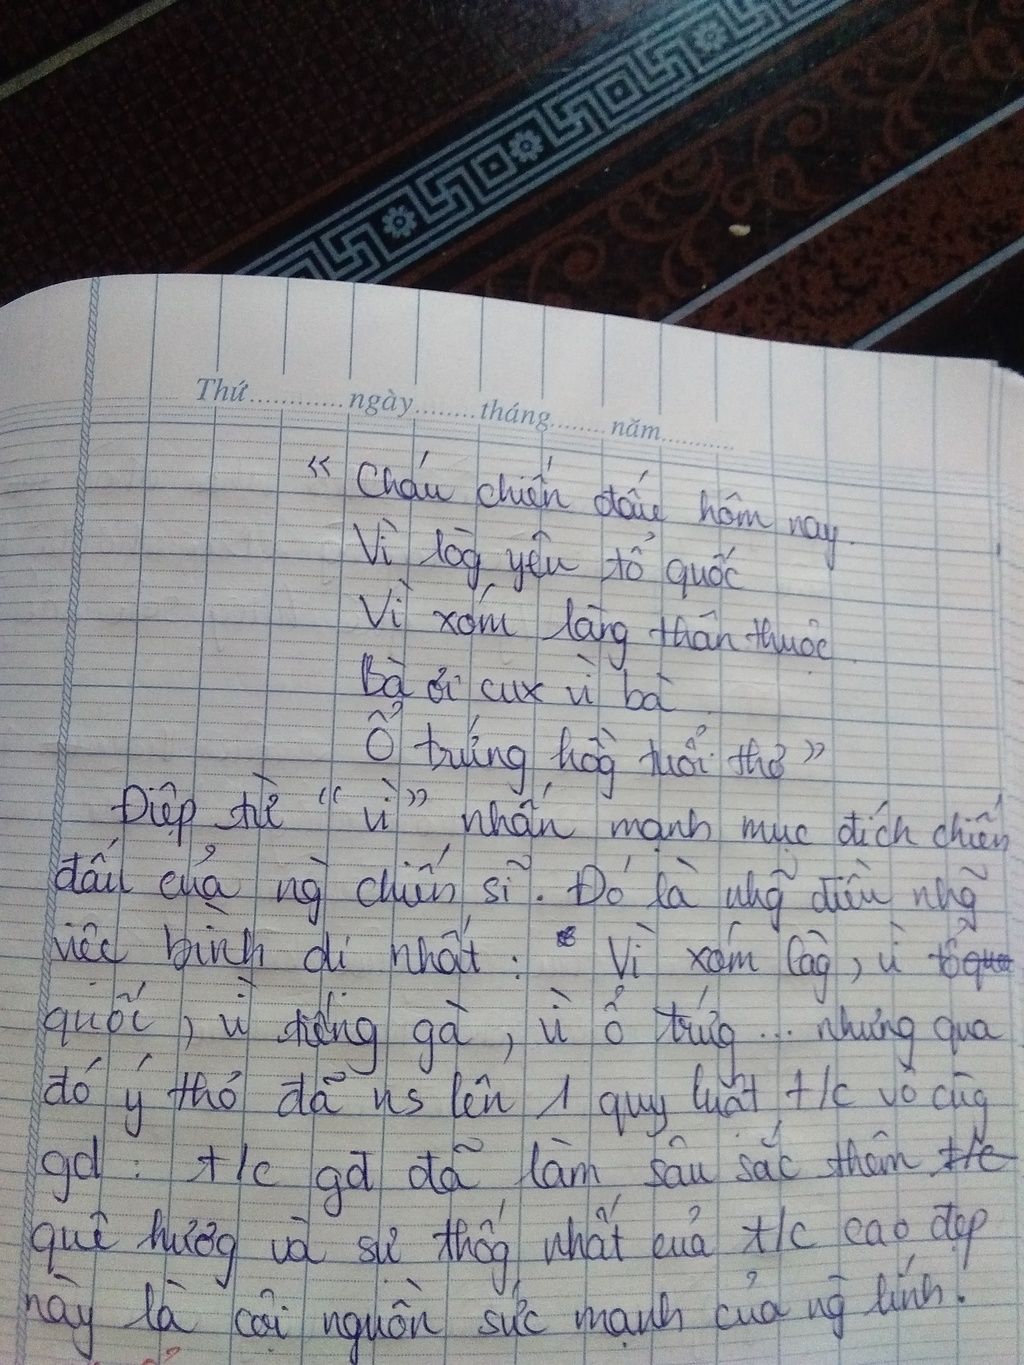 Thứ............ngày........tháng........năm..........
“ Cháu chiến đấu hôm nay.
Vì lòg yêu tổ quốc
Vì xóm làng thân thuộc.
Bà ơi cux vì bà
Ổ trứng hồg tuổi thơ ”
Điệp từ “ vì ” nhấn mạnh mục đích chiến
đấu của ng chiến sĩ. Đó là nhg điều nhg
việc bình dị nhất : Vì xóm làg, vì tổ
quốc, vì tiếng gà, vì ổ trứg ... nhưng qua
đó ý thơ đã ns lên 1 quy luật t/c vô cùg
gd : t/c gđ đã làm sâu sắc thêm t/c
quê hươg và sự thốg nhất của t/c cao đẹp
này là cội nguồn sức mạnh của ng lính.